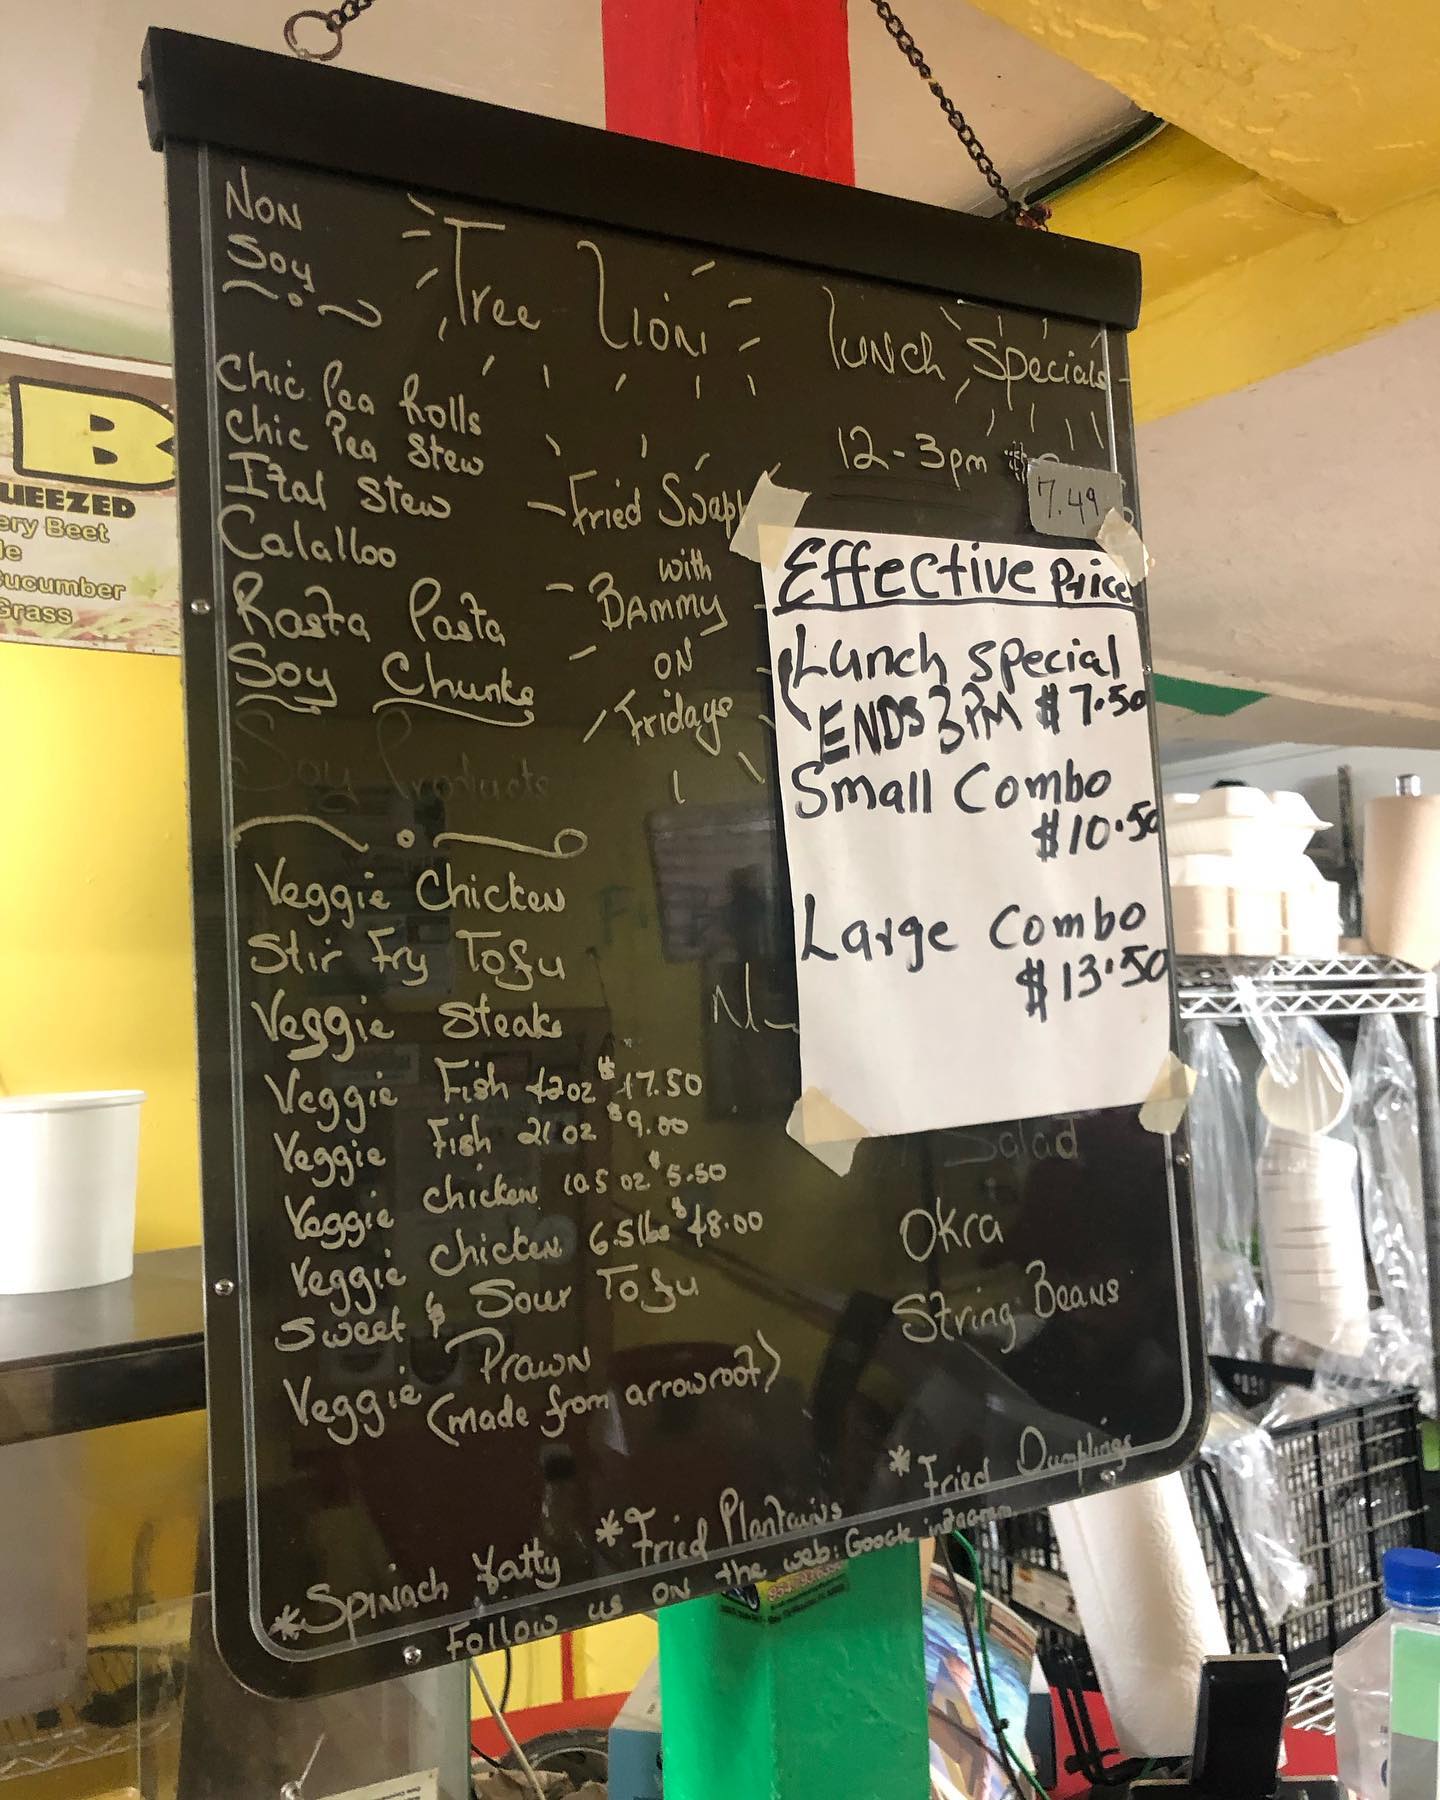 NON
Soy
Tree Lion
Lunch Specials
12-3pm
7.49
Chic Pea Rolls
Chic Pea Stew
Ital Stew
Calalloo
Rasta Pasta
Soy Chunks
Soy Products
Fried Snapp
with
BAMMY
ON
Fridays
Effective Price
Lunch special
ENDS 3PM $7.50
Small Combo
$10.50
Large Combo
$13.50
Veggie Chicken
Stir Fry Tofu
Veggie Steak
Veggie Fish 12oz $17.50
Veggie Fish 21 oz $9.00
Veggie chicken 10.5 oz $5.50
Veggie chicken 6.5lbs $48.00
Sweet & Sour Tofu
Veggie Prawn
(made from arrowroot)
Salad
Okra
String Beans
*Spinach Patty *Fried Plantains *Fried Dumplings
Follow us on the web: Google instagram
B
UEEZED
ery Beet
le
ucumber
Grass